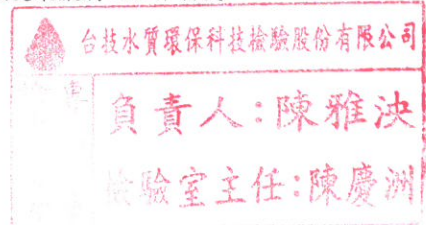 台技水質環保科技檢驗股份有限公司
負責人：陳雅泱
檢驗室主任：陳慶洲